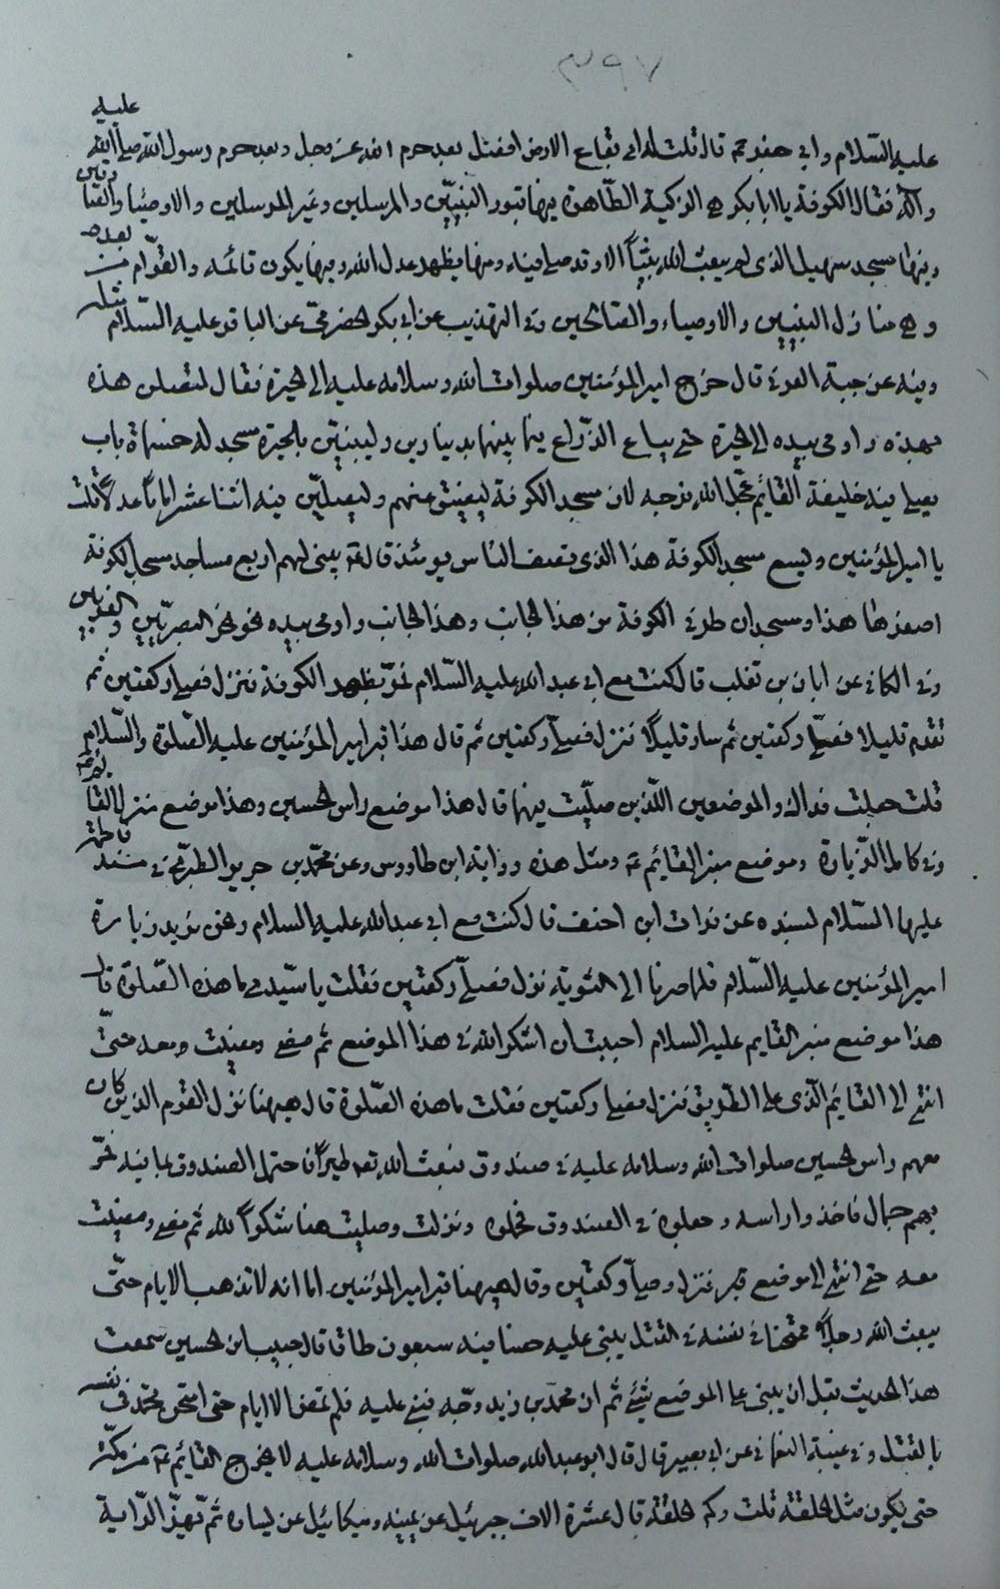 ٣٩٧
عليه
عليه السّلام وابي جعفر ع قال قلت له اي بقاع الارض افضل بعد حرم الله عز وجل وبعد حرم رسول الله صلى الله
وآله فقال الكوفة يا ابا بكر هي الزكية الطّاهرة فيها قبور النبيّين والمرسلين وغير المرسلين والاوصياء
وفيها مسجد سهيل الذى لم يبعث الله نبيّاً الا وقد صلى فيه ومنها يظهر عدل الله وفيها يكون قائمه والقوّام من بعده
وهي منازل النبيين والاوصياء والصالحين وفى التهذيب عن ابى بكر الحضرمىّ عن الباقر عليه السّلام مثله
وفيه عن حبة العرنى قال خرج امير المؤمنين صلوات الله وسلامه عليه الى الحيرة فقال لتصلن هذه
بهذه واومى بيده الى الحيرة حتى يباع الذّراع فيما بينهما بدينارين وليبنين بالحيرة مسجد له خمسمائة باب
يصلى فيه خليفة القائم عجّل الله فرجه لان مسجد الكوفة ليضيق عنهم وليصلّين فيه اثنا عشر اماماً عدلاً قلت
يا امير المؤمنين ويسع مسجد الكوفة هذا الذى تصف الناس يومئذ قال ع يبنى لهم اربع مساجد مسجد الكوفة
اصغرها هذا ومسجدان فى طرفى الكوفة من هذا الجانب وهذا الجانب واومى بيده نحو نهر البصريّين والغريين
وفى الكافى عن ابان بن تغلب قال كنت مع ابى عبد الله عليه السّلام فمرّ بظهر الكوفة فنزل فصلى ركعتين ثم
تقدم قليلا فصلّى ركعتين ثم سار قليلاً فنزل فصلى ركعتين ثم قال هذا قبر امير المؤمنين عليه الصّلوة والسّلام
قلت جعلت فداك والموضعين اللّذين صلّيت فيهما قال هذا موضع راس الحسين وهذا موضع منزل القائم
وفى كامل الزّيارة وموضع منبر القائم ع ومثل هذه رواية ابن طاووس وعن محمّد بن جرير الطبرى فى مسند فاطمة
عليها السّلام بسنده عن فرات ابن احنف قال كنت مع ابى عبد الله عليه السلام ونحن نريد زيارة
امير المؤمنين عليه السّلام فلما صرنا الى الثوية نزل فصلّى ركعتين فقلت يا سيّدى ما هذه الصّلوة قال
هذا موضع منبر القايم عليه السلام احببت ان اشكر الله فى هذا الموضع ثم مضى ومضيت ومعه حتىّ
انتهى الى القايم الّذى على الطّريق فنزل فصلى ركعتين فقلت ما هذه الصّلوة قال ههنا نزل القوم الذين كان
معهم راس الحسين صلوات الله وسلامه عليه فى صندوق فبعث الله تعه طيراً فاحتمل الصندوق بما فيه فمرّ
بهم جمال فاخذوا راسه وجعلوه فى الصندوق فحملوه ونزلت وصليت هنا شكراً لله ثم مضى ومضيت
معه حتى انتهى الى موضع قبر فنزل وصلّى ركعتين وقال ههنا قبر امير المؤمنين اما انه لا تذهب الايام حتّى
يبعث الله رجلاً ممتحنا فى نفسه فى القتل يبنى عليه حصنا فيه سبعون طاقا قال حبيب ابن الحسين سمعت
هذا الحديث قبل ان يبنى على الموضع شئ ثم ان محمّد بن زيد وجّه فبنى عليه فلم تمض الايام حتى امتحن محمّد فى نفسه
بالقتل وفى غيبة النعمانى عن ابى بصير قال قال ابو عبد الله صلوات الله وسلامه عليه لا يخرج القائم ع من مكّة
حتى يكون مثل الحلقة قلت وكم الحلقة قال عشرة الاف جبرئيل عن يمينه وميكائيل عن يساره ثم يهزّ الرّاية